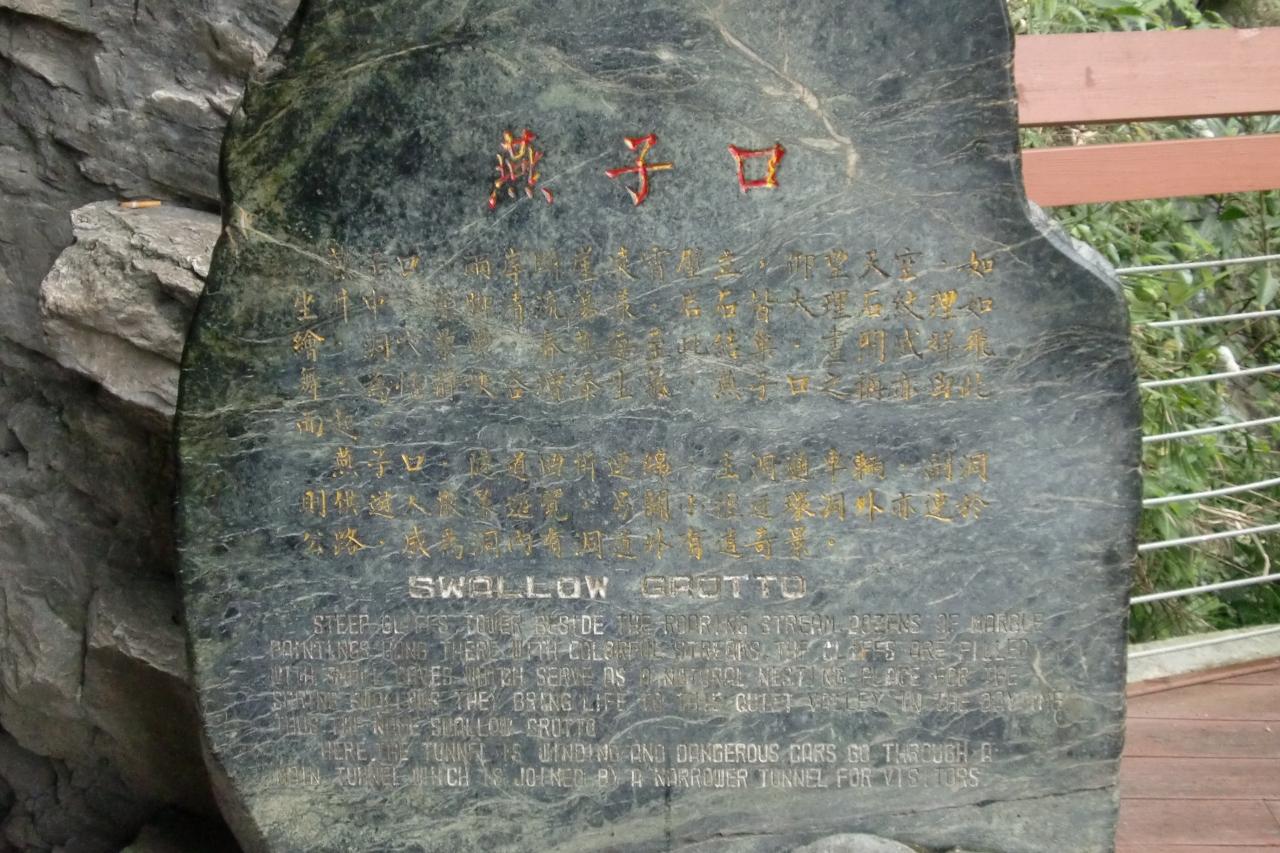 燕子口
燕子口 兩岸 壁立,仰望天空,如
坐井中 石皆大理石紋理如
繪 洞穴 春 至此結巢,晝間成群飛
舞,為 靜峽谷增添生氣,燕子口之稱亦由此
而起。
燕子口,隧道曲折連綿,主洞通車輛,副洞
則供遊人 遊覽, 洞外亦建於
公路,成為洞內有洞道外有道奇景。
SWALLOW GROTTO
STEEP CLIFFS TOWER BESIDE THE ROARING STREAM. DOZENS OF MARBLE
PAINTINGS HANG THERE WITH COLORFUL STREAKS. THE CLIFFS ARE FILLED
WITH SMALL HOLES WHICH SERVE AS A NATURAL NESTING PLACE FOR THE
SPRING SWALLOWS. THEY BRING LIFE TO THIS QUIET VALLEY IN THE DAYTIME
THUS THE NAME SWALLOW GROTTO
HERE THE TUNNEL IS WINDING AND DANGEROUS CARS GO THROUGH A
MAIN TUNNEL WHICH IS JOINED BY A NARROWER TUNNEL FOR VISITORS